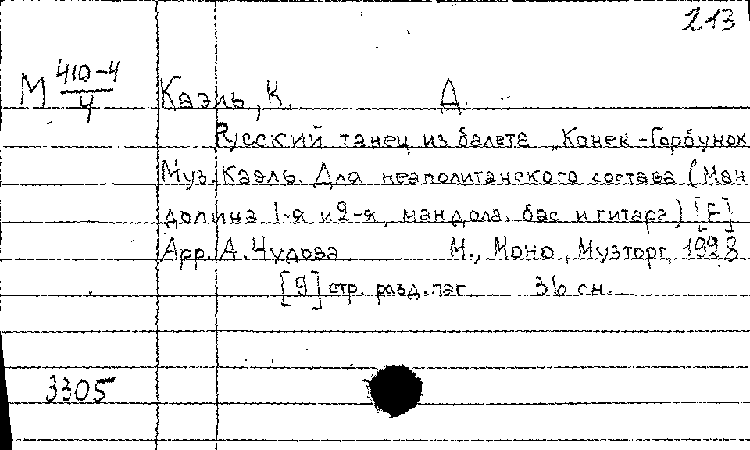 213
М 410-4/4 Каэль, К. Д.
Русский танец из балета „Конек-Горбунок
Муз. Каэль. Для неаполитанского состава (Ман
долина 1-я и 2-я, мандола, бас и гитара) [F]
Арр. А. Чудова М., Моно, Музторг, 1928
[9] стр. разд. паг. 36 сн.
3305